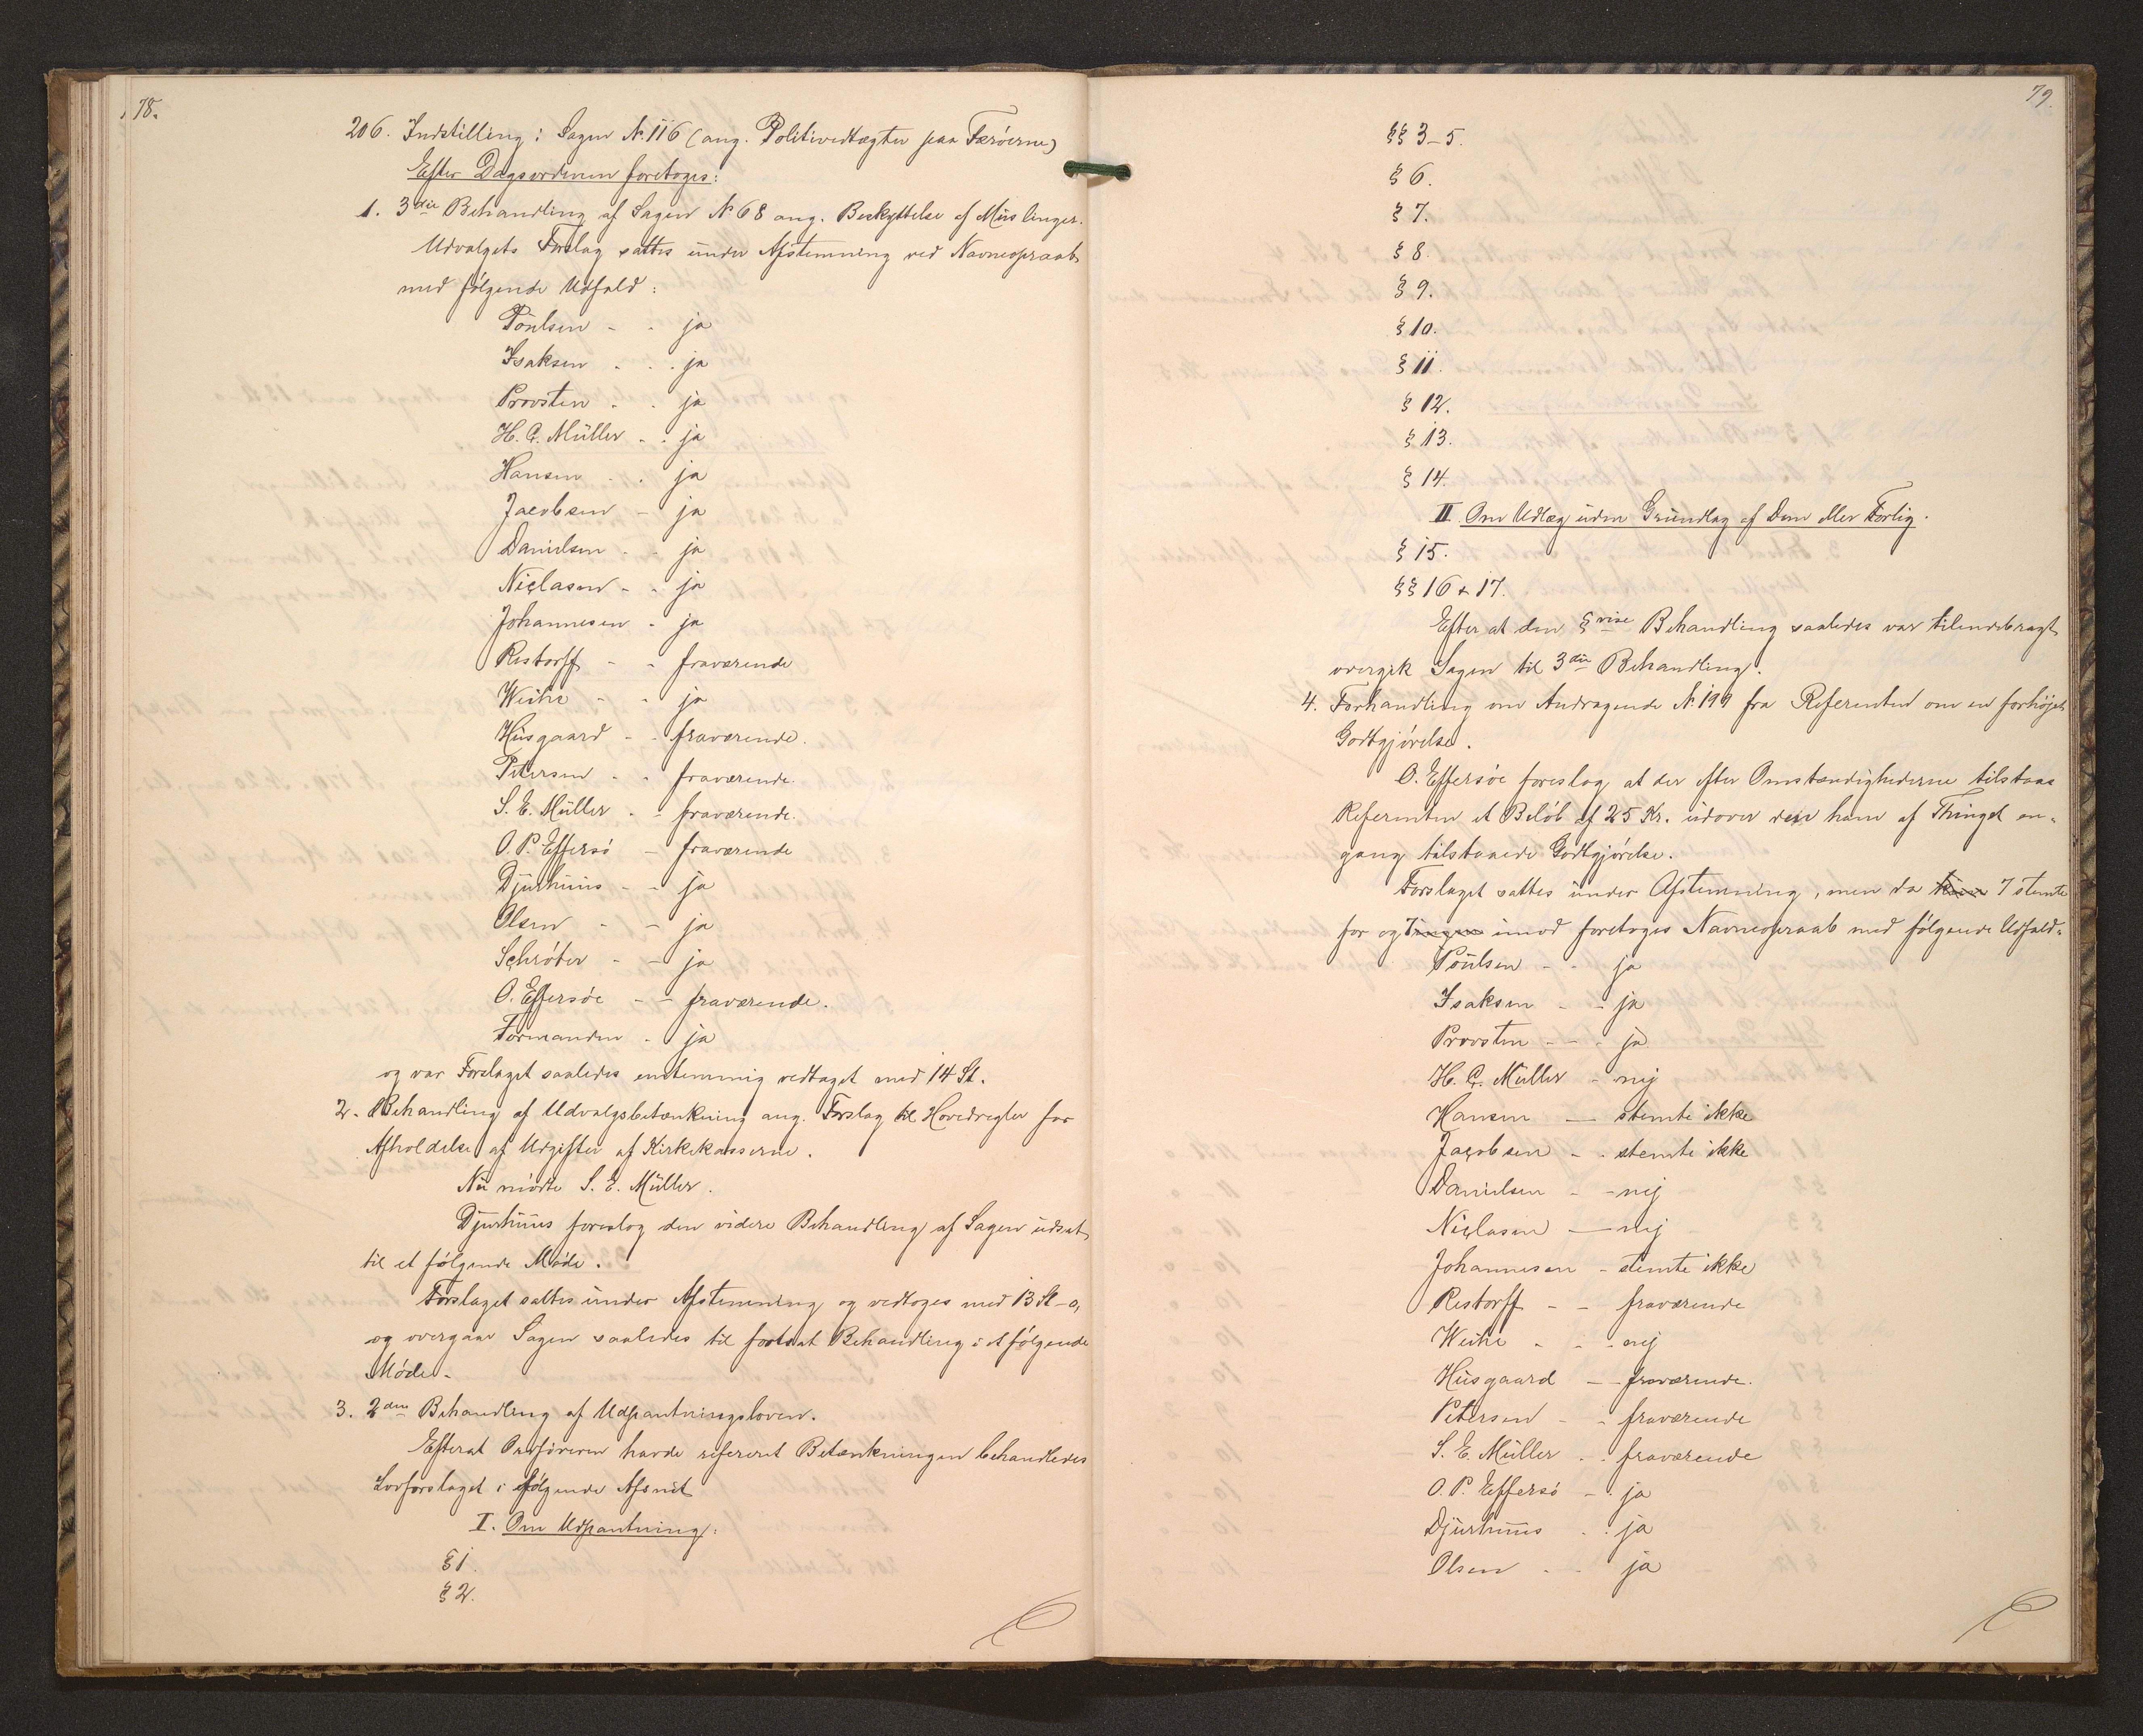 78.
206. Indstilling i Sagen No 116 (ang. Politivedtægter paa Færøerne)
Efter Dagsordenen foretoges:
1. 3die Behandling af Sagen No 68 ang. Beskyttelse af Muslinger.
Udvalgets Forslag sattes under Afstemning ved Navneopraab
med følgende Udfald:
Poulsen - - ja
Isaksen - - ja
Provsten - - ja
H. C. Müller - - ja
Hansen - - ja
Jacobsen - ja
Danielsen - - ja
Niclasen - - ja
Johannesen - ja
Restorff - - fraværende
Weihe - - ja
Husgaard - - fraværende.
Petersen - - fraværende.
S. E. Müller - - fraværende.
O. P. Effersö - fraværende
Djurhuus - - ja
Olsen - - ja
Schrøter - - ja
O. Effersøe - - fraværende.
Formanden - ja
og var Forslaget saaledes enstemmig vedtaget med 14 St.
2. Behandling af Udvalgsbetænkning ang. Forslag til Hovedregler for
Afholdelse af Udgifter af Kirkekasserne.
Nu mødte S. E. Müller.
Djurhuus foreslog den videre Behandling af Sagen udsat
til et følgende Møde.
Forslaget sattes under Afstemning og vedtoges med 13 St - 0,
og overgaar Sagen saaledes til fortsat Behandling i et følgende
Møde.
3. 2den Behandling af Udpantningsloven.
Efterat Ordføreren havde refereret Betænkningen behandledes
Lovforslaget i følgende Afsnit
I. Om Udpantning:
§ 1.
§ 2.
79.
§§ 3-5.
§ 6.
§ 7.
§ 8.
§ 9.
§ 10.
§ 11.
§ 12.
§ 13.
§ 14.
II Om Udlæg uden Grundlag af Dom eller Forlig.
§ 15.
§§ 16 & 17.
Efter at den §vise Behandling saaledes var tilendebragt
overgik Sagen til 3die Behandling.
4. Forhandling om Andragende No 199 fra Referenten om en forhøjet
Godtgjørelse.
O. Effersøe foreslog, at der efter Omstændighederne tilstaas
Referenten et Beløb af 25 Kr. udover den ham af Thinget en-
gang tilstaaede Godtgjørelse.
Forslaget sattes under Afstemning, men da 7 stemte
for og 7 imod foretoges Navneopraab med følgende Udfald:
Poulsen - - ja
Isaksen - - ja
Provsten - - - ja
H. C. Müller - nej
Hansen - stemte ikke
Jacobsen - - stemte ikke
Danielsen - - nej
Niclasen - nej
Johannesen - stemte ikke
Restorff - - fraværende
Weihe - - - nej
Husgaard - - fraværende.
Petersen - - fraværende
S. E. Müller - - fraværende
O. P. Effersö - - ja
Djurhuus - - ja
Olsen - - ja